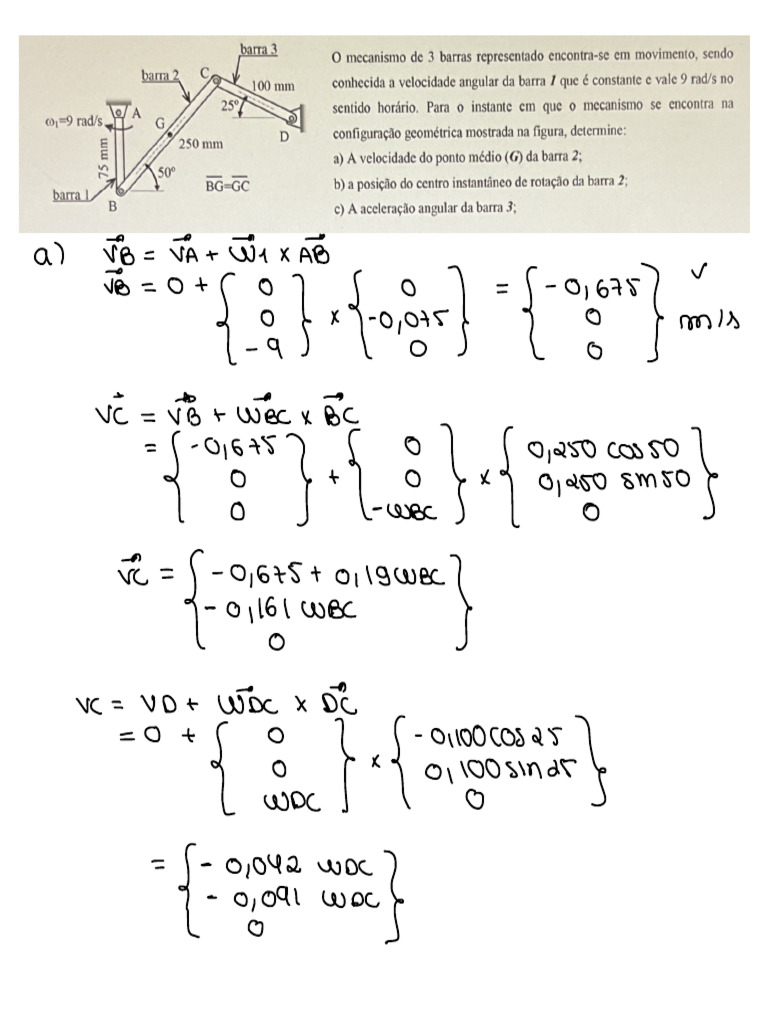 barra 3
barra 2
C
100 mm
ω₁=9 rad/s
A
25°
G
D
75 mm
250 mm
50°
barra 1
B
BG=GC
O mecanismo de 3 barras representado encontra-se em movimento, sendo
conhecida a velocidade angular da barra 1 que é constante e vale 9 rad/s no
sentido horário. Para o instante em que o mecanismo se encontra na
configuração geométrica mostrada na figura, determine:
a) A velocidade do ponto médio (G) da barra 2;
b) a posição do centro instantâneo de rotação da barra 2;
c) A aceleração angular da barra 3;
a) VB = VA + W1 x AB
VB = 0 + { 0 0 -9 } x { 0 -0,075 0 } = { -0,675 0 0 } √ m/s
VC = VB + WBC x BC
= { -0,675 0 0 } + { 0 0 -WBC } x { 0,250 cos 50 0,250 sm 50 0 }
VC = { -0,675 + 0,19 WBC -0,161 WBC 0 }
VC = VD + WDC x DC
= 0 + { 0 0 WDC } x { -0,100 cos 25 0,100 sin 25 0 }
= { -0,042 WDC -0,091 WDC 0 }